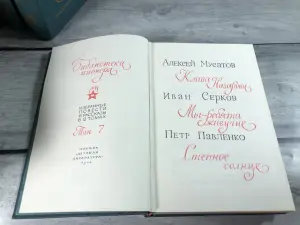 Библиотека
пионера
ИЗБРАННЫЕ
ПОВЕСТИ
И РАССКАЗЫ
Том 7
АЛЕКСЕЙ МУСАТОВ
Клава Назарова
ИВАН СЕРКОВ
Мы-ребята
живучие
ПЕТР ПАВЛЕНКО
Степное
солнце